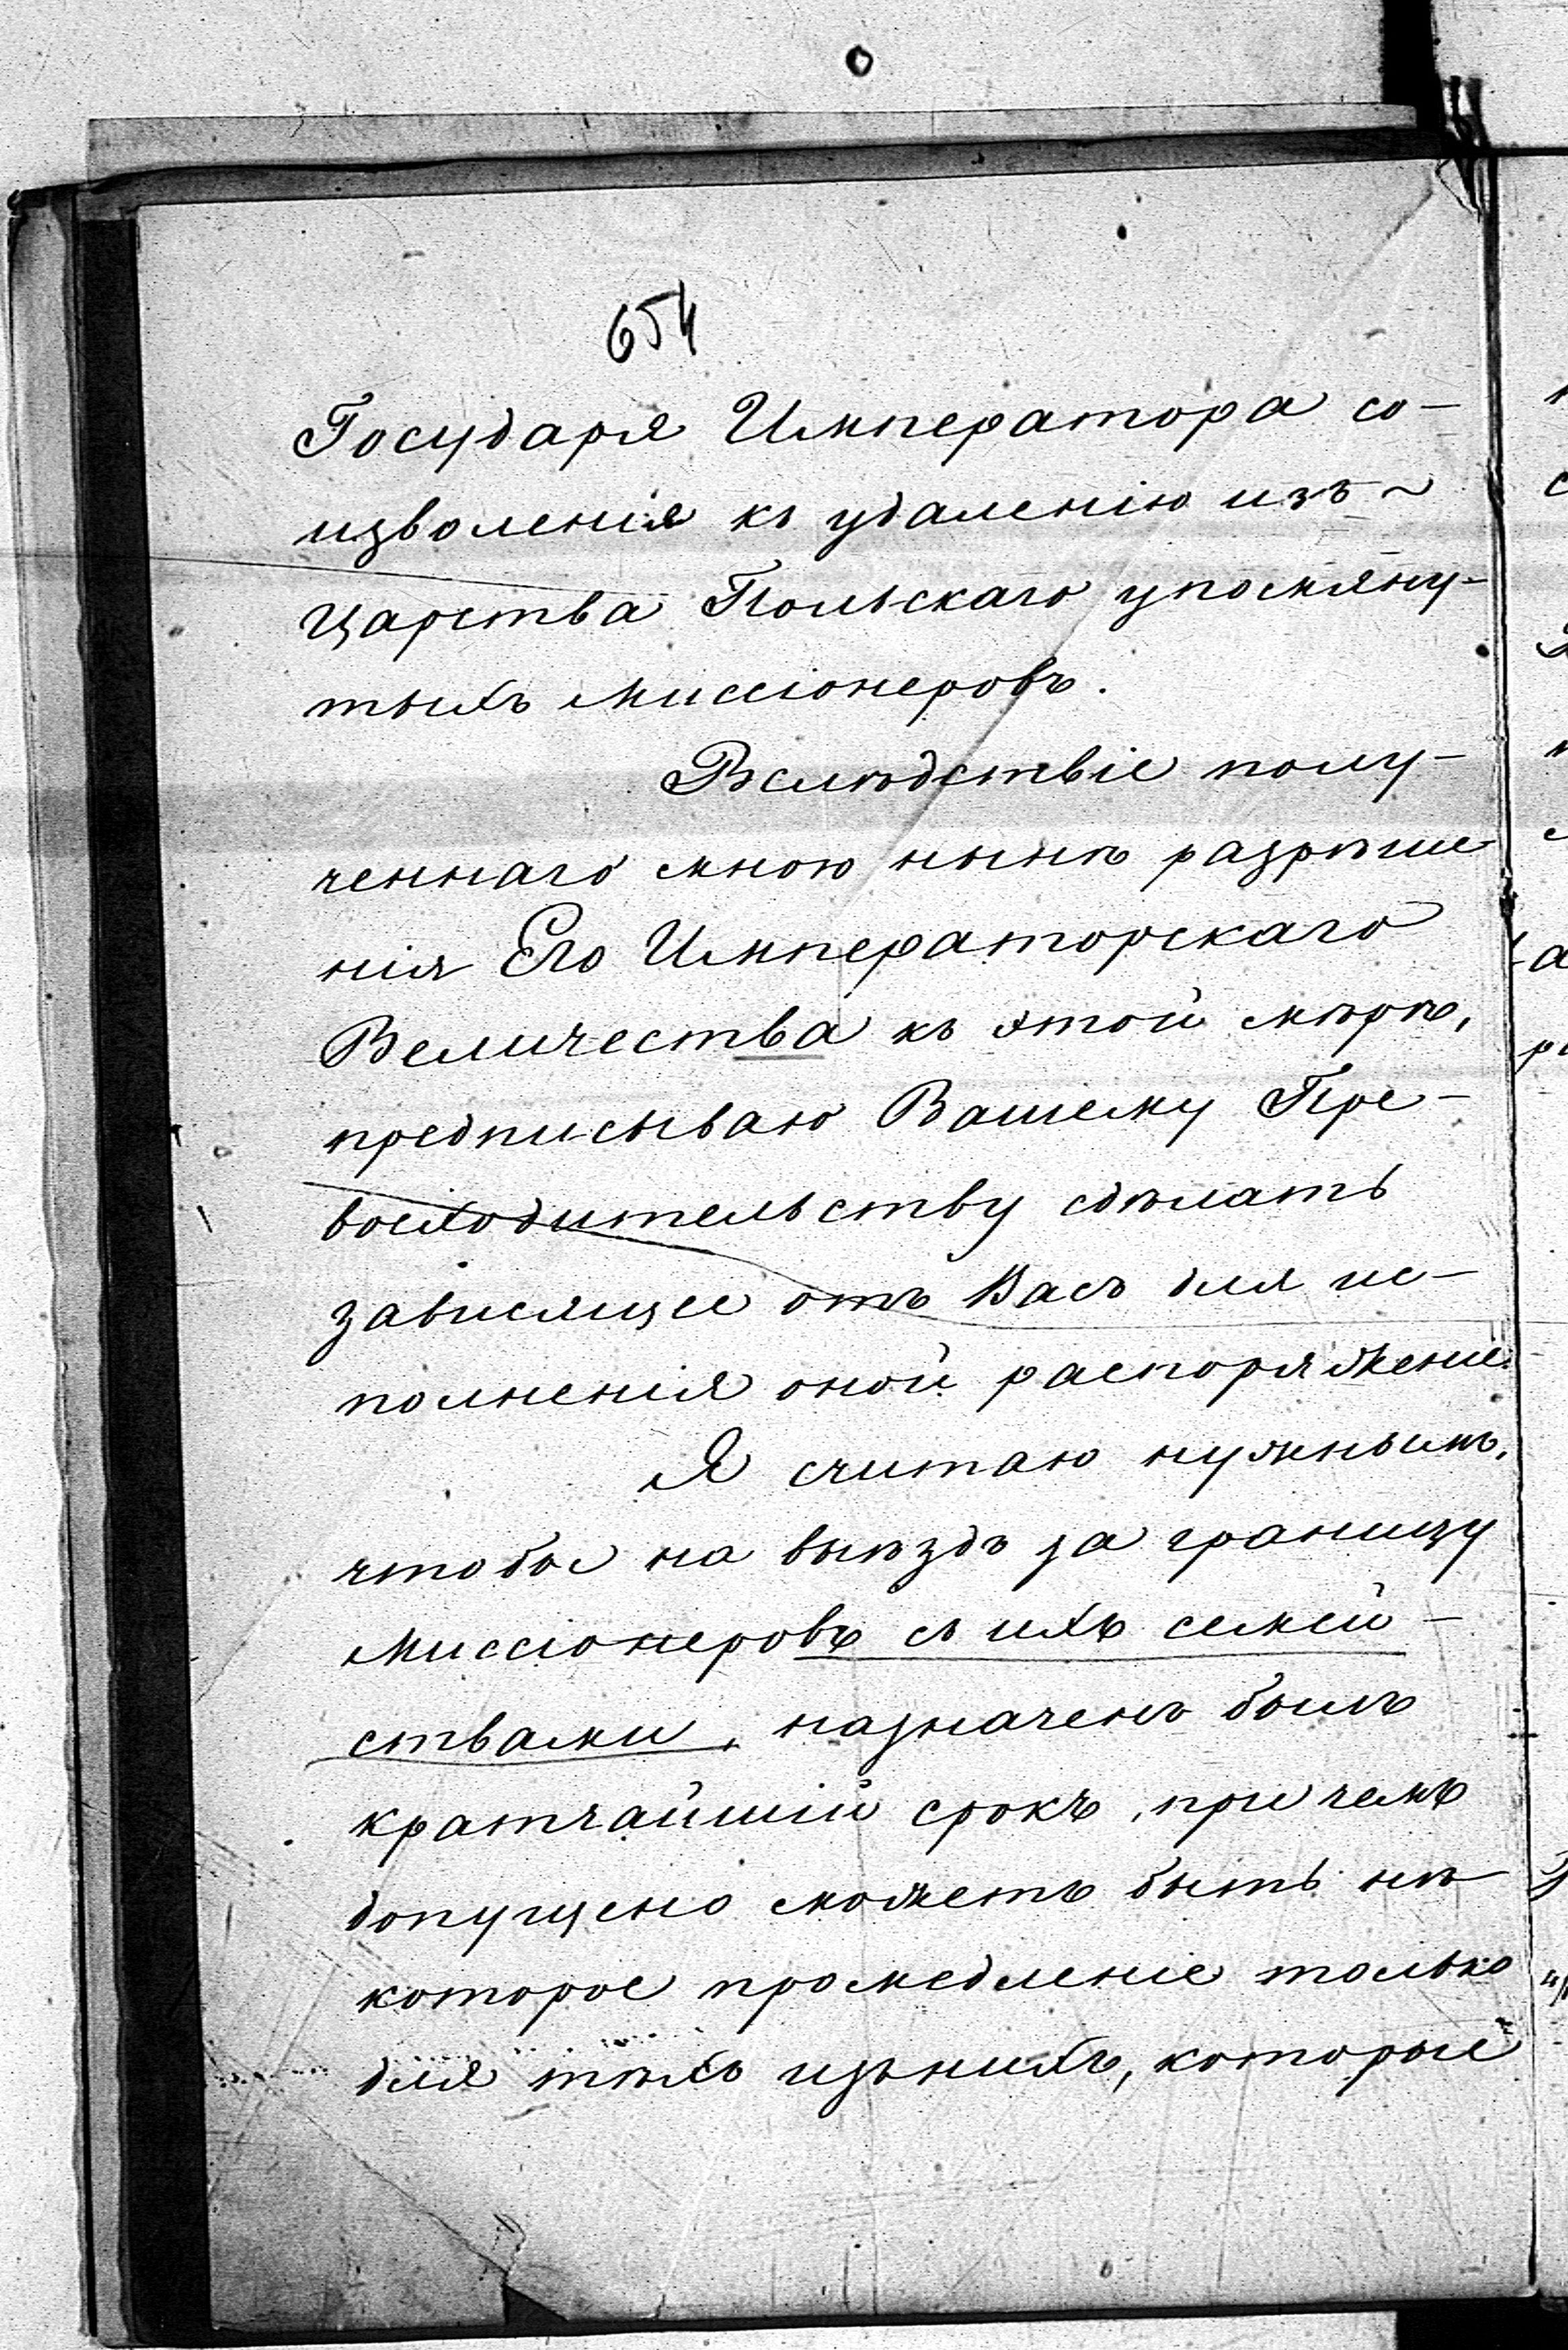 654
Государя Императора со-
изволенія къ удаленію изъ ~
Царства Польскаго упомяну-
тыхъ Миссіонеровъ.
Вслѣдствіе полу-
ченнаго мною нынѣ разрѣше
нія Его Императорскаго
Величества къ этой мѣрѣ,
предписываю Вашему Пре-
восходительству сдѣлать
зависящее отъ Васъ для ис-
полненія оной распоряженіе.
Я считаю нужнымъ,
чтобы на выѣздъ за границу
Миссіонеровъ съ ихъ семей-
ствами, назначенъ былъ
кратчайшій срокъ, при чемъ
допущено можетъ быть нѣ
которое промедленіе только
для тѣхъ изъ нихъ, которые